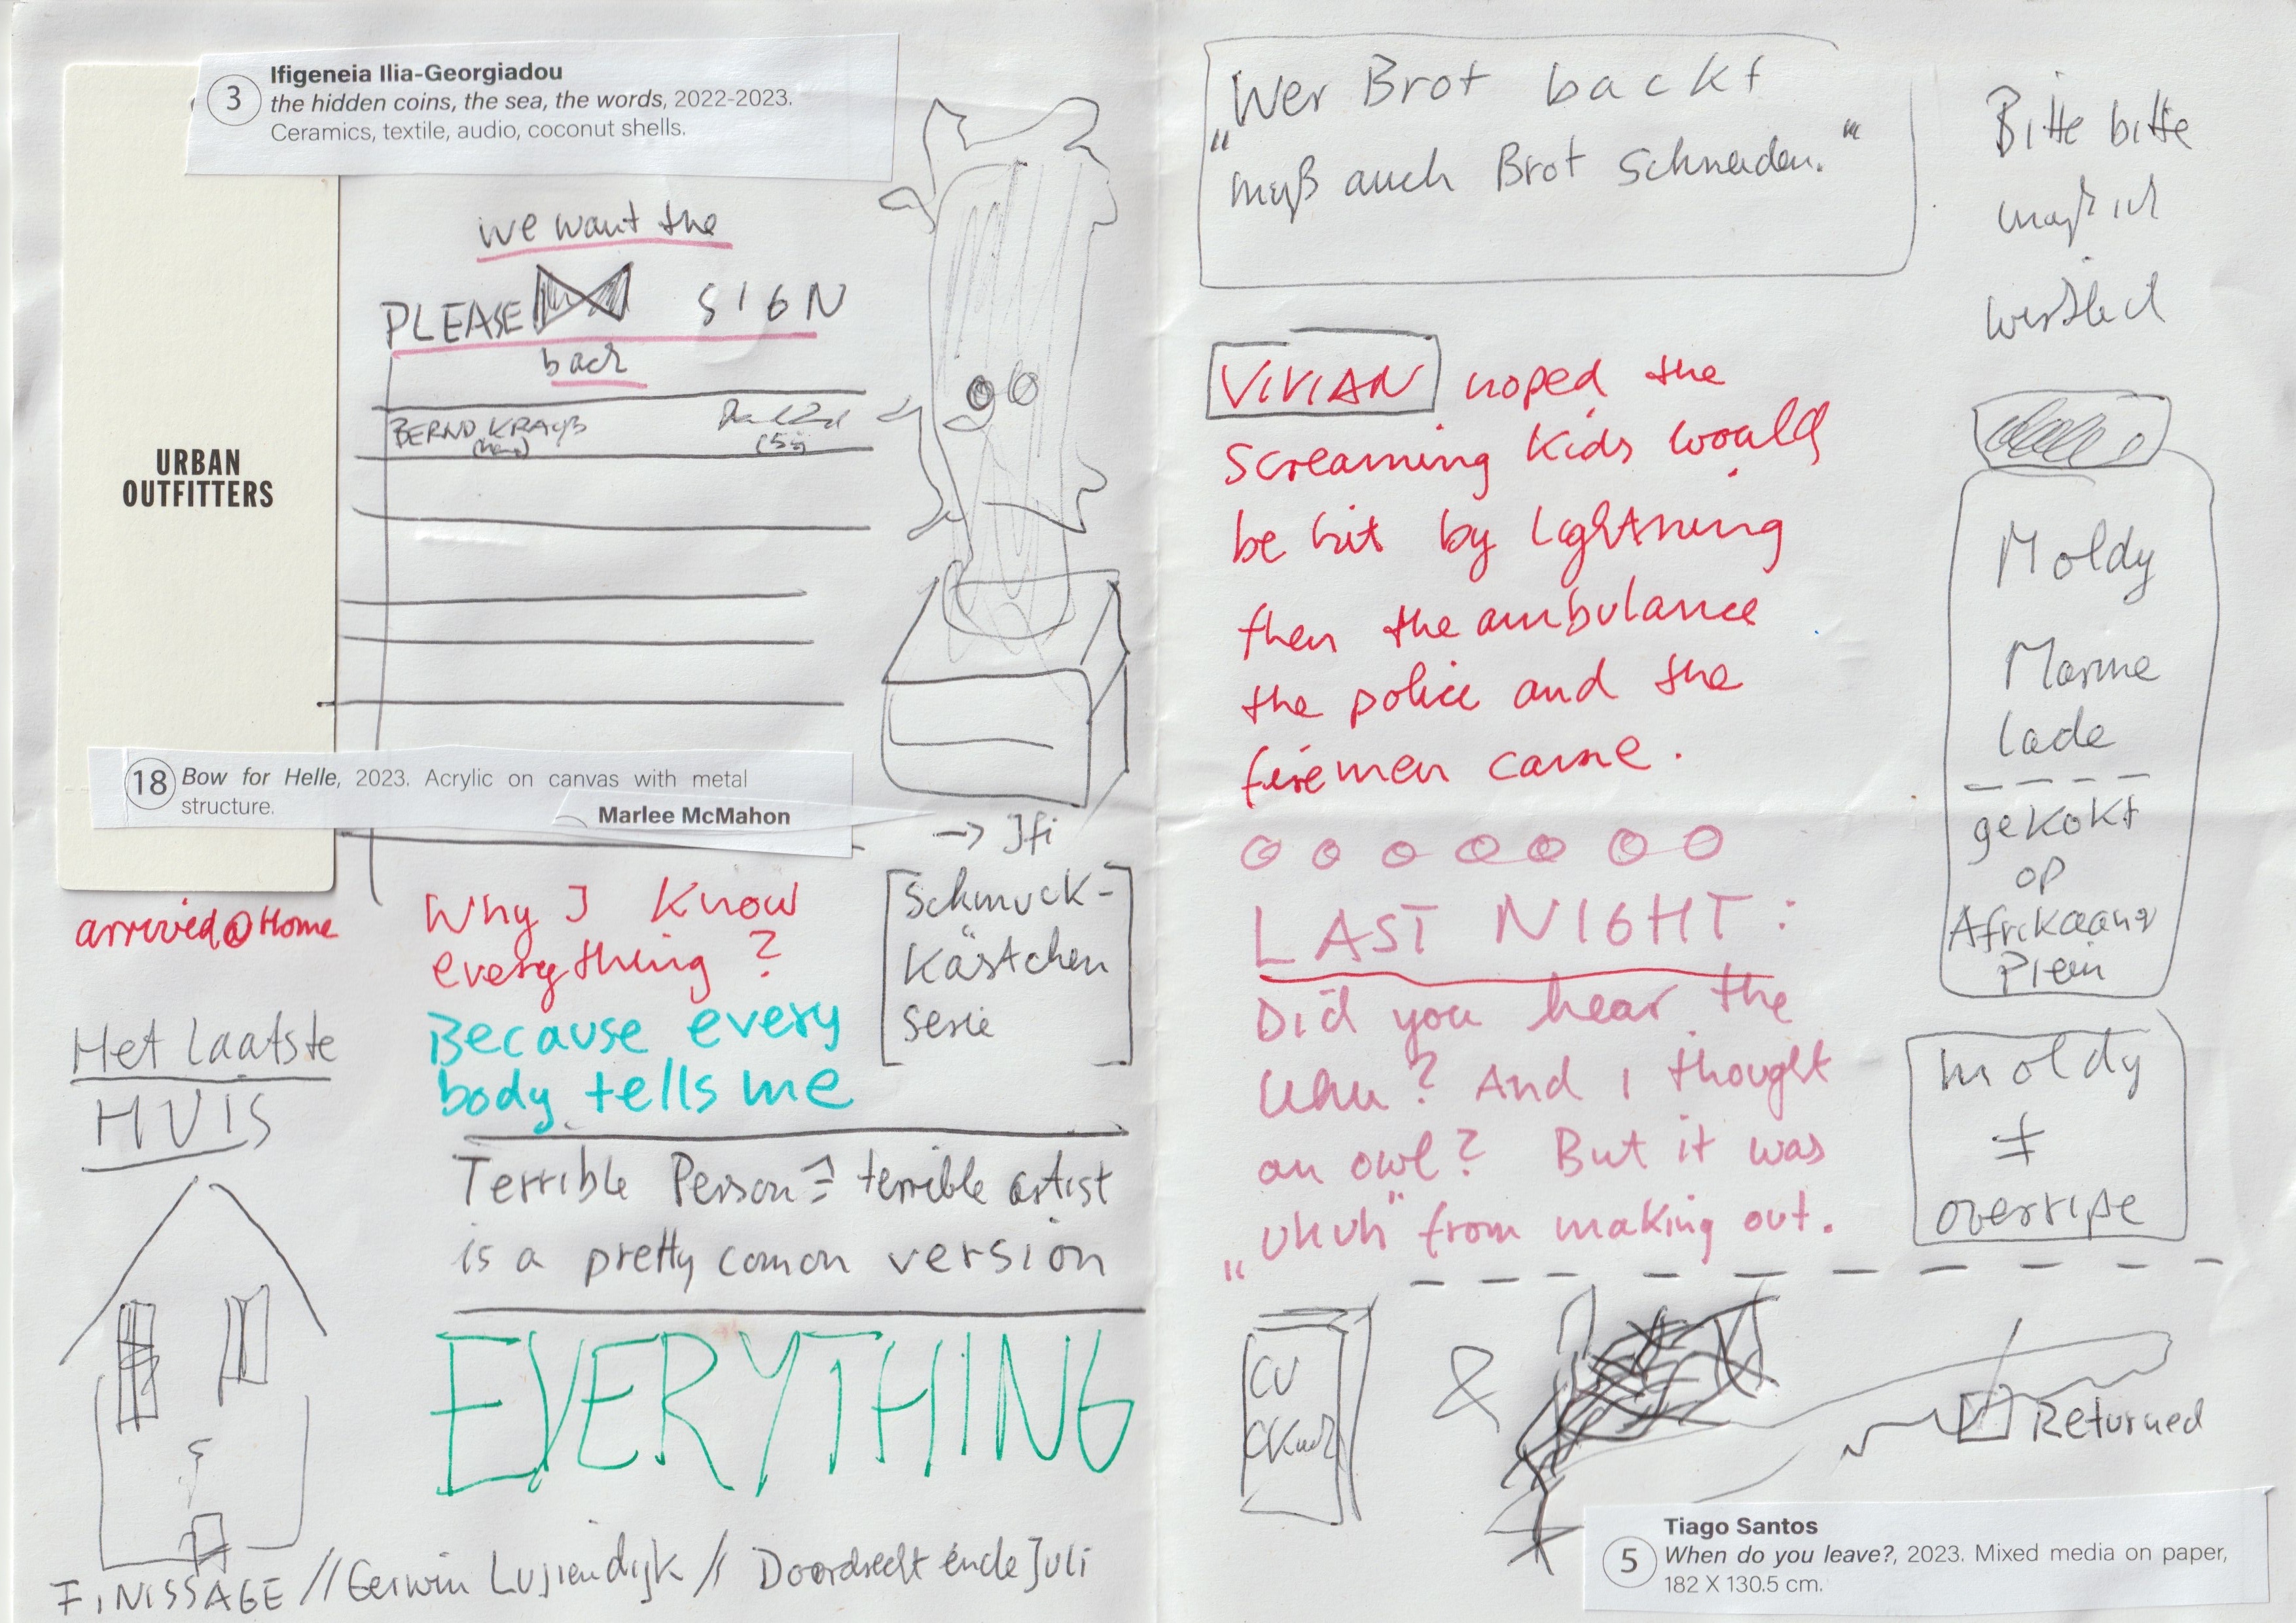 3
Ifigeneia Ilia-Georgiadou
the hidden coins, the sea, the words, 2022-2023.
Ceramics, textile, audio, coconut shells.
URBAN
OUTFITTERS
we want the
PLEASE SIGN
back
BERND KRAUß
18
Bow for Helle, 2023. Acrylic on canvas with metal
structure.
Marlee McMahon
-> Ifi
Schmuck-
Kästchen
serie
arrived@Home
Why I Know
everything?
Because every
body tells me
Het laatste
HUIS
Terrible Person = terrible artist
is a pretty comon version
EVERYTHING
FINISSAGE // Gerwin Luijendijk // Doordrecht ende Juli
„Wer Brot backt
muß auch Brot schneiden."
Bitte bitte
VIVIAN hoped the
screaming kids would
be hit by lightning
then the ambulance
the police and the
firemen came.
LAST NIGHT:
Did you hear the
Uhu? And I thought
an owl? But it was
„uhuh" from making out.
Moldy
Marme
lade
gekokt
op
Afrikaaner
Plein
moldy
≠
overripe
CU
&
Returned
5
Tiago Santos
When do you leave?, 2023. Mixed media on paper,
182 X 130.5 cm.